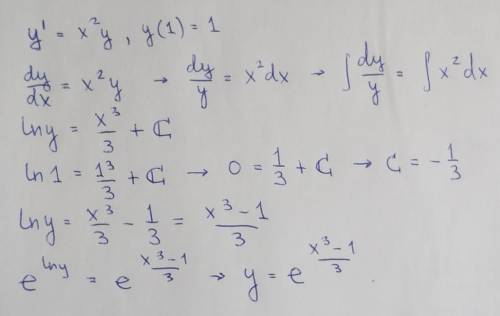 y' = x²y , y(1) = 1
dy/dx = x²y → dy/y = x²dx → ∫ dy/y = ∫ x²dx
ln y = x³/3 + C
ln 1 = 1³/3 + C → 0 = 1/3 + C → C = -1/3
ln y = x³/3 - 1/3 = (x³-1)/3
e^(ln y) = e^((x³-1)/3) → y = e^((x³-1)/3)